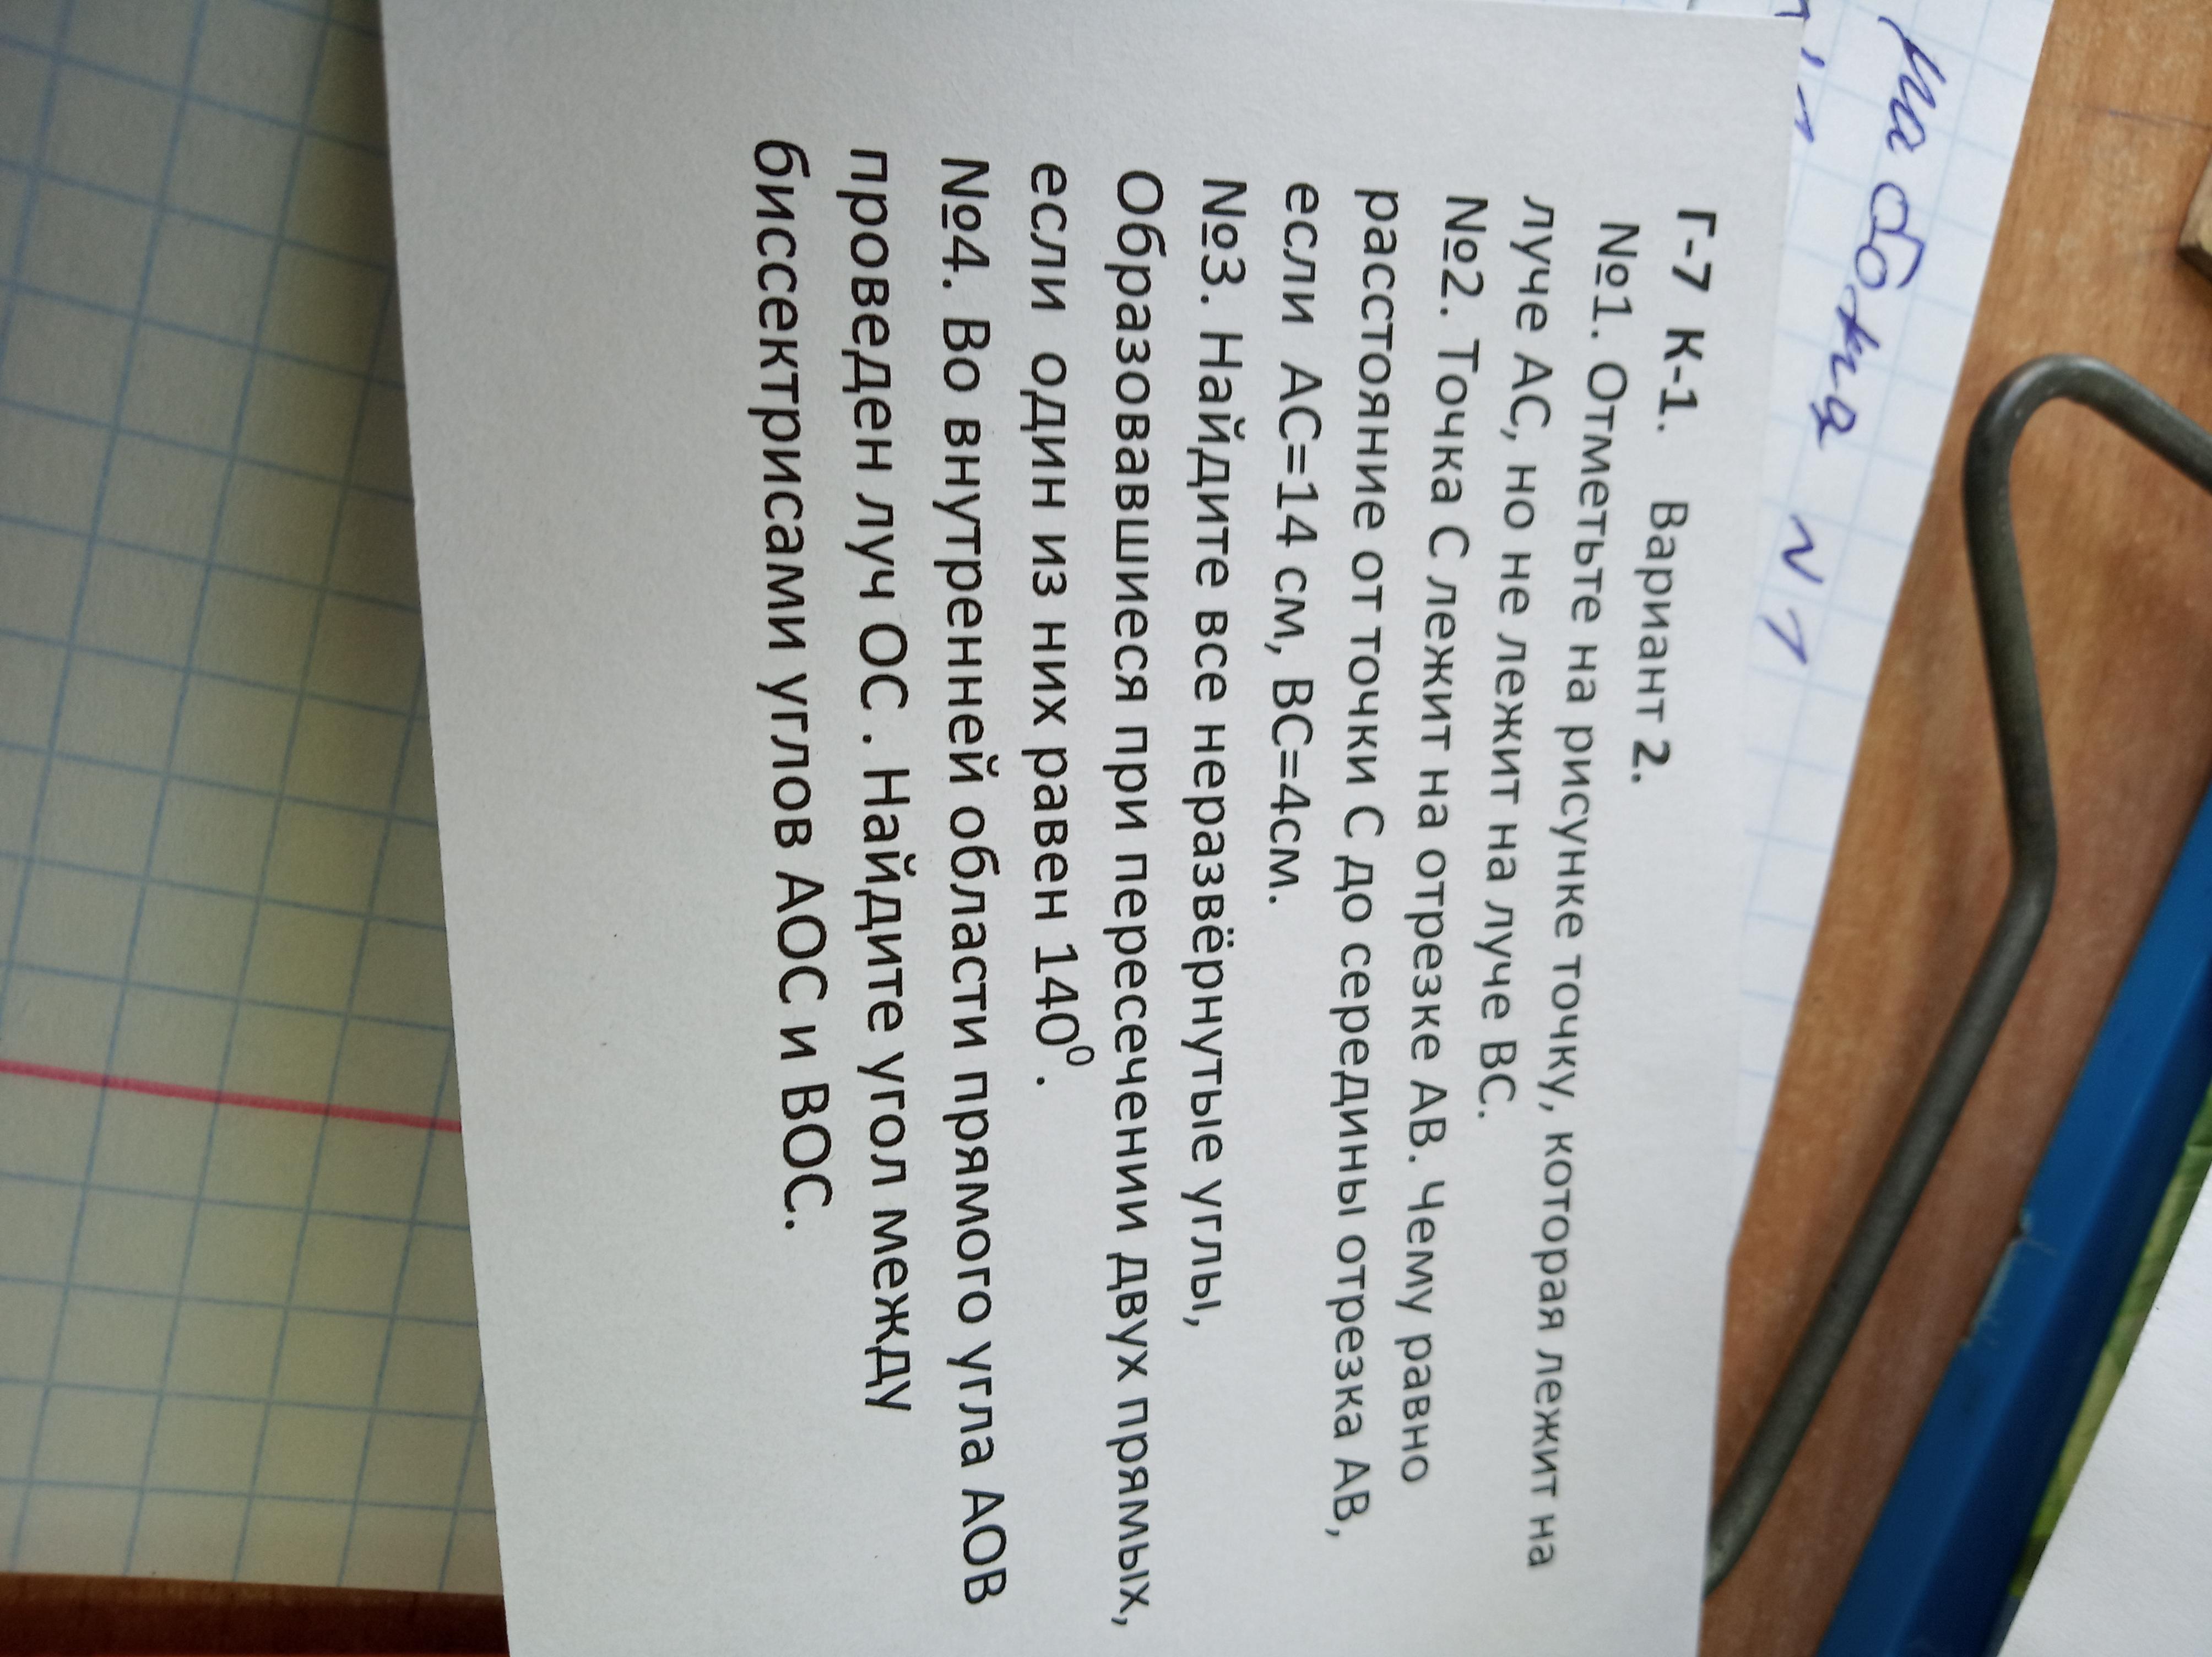 на обжя N 1
Г-7 К-1. Вариант 2.
№1. Отметьте на рисунке точку, которая лежит на
луче АС, но не лежит на луче ВС.
№2. Точка С лежит на отрезке АВ. Чему равно
расстояние от точки С до середины отрезка АВ,
если АС=14 см, ВС=4см.
№3. Найдите все неразвёрнутые углы,
Образовавшиеся при пересечении двух прямых,
если один из них равен 140⁰.
№4. Во внутренней области прямого угла АОВ
проведен луч ОС . Найдите угол между
биссектрисами углов АОС и ВОС.